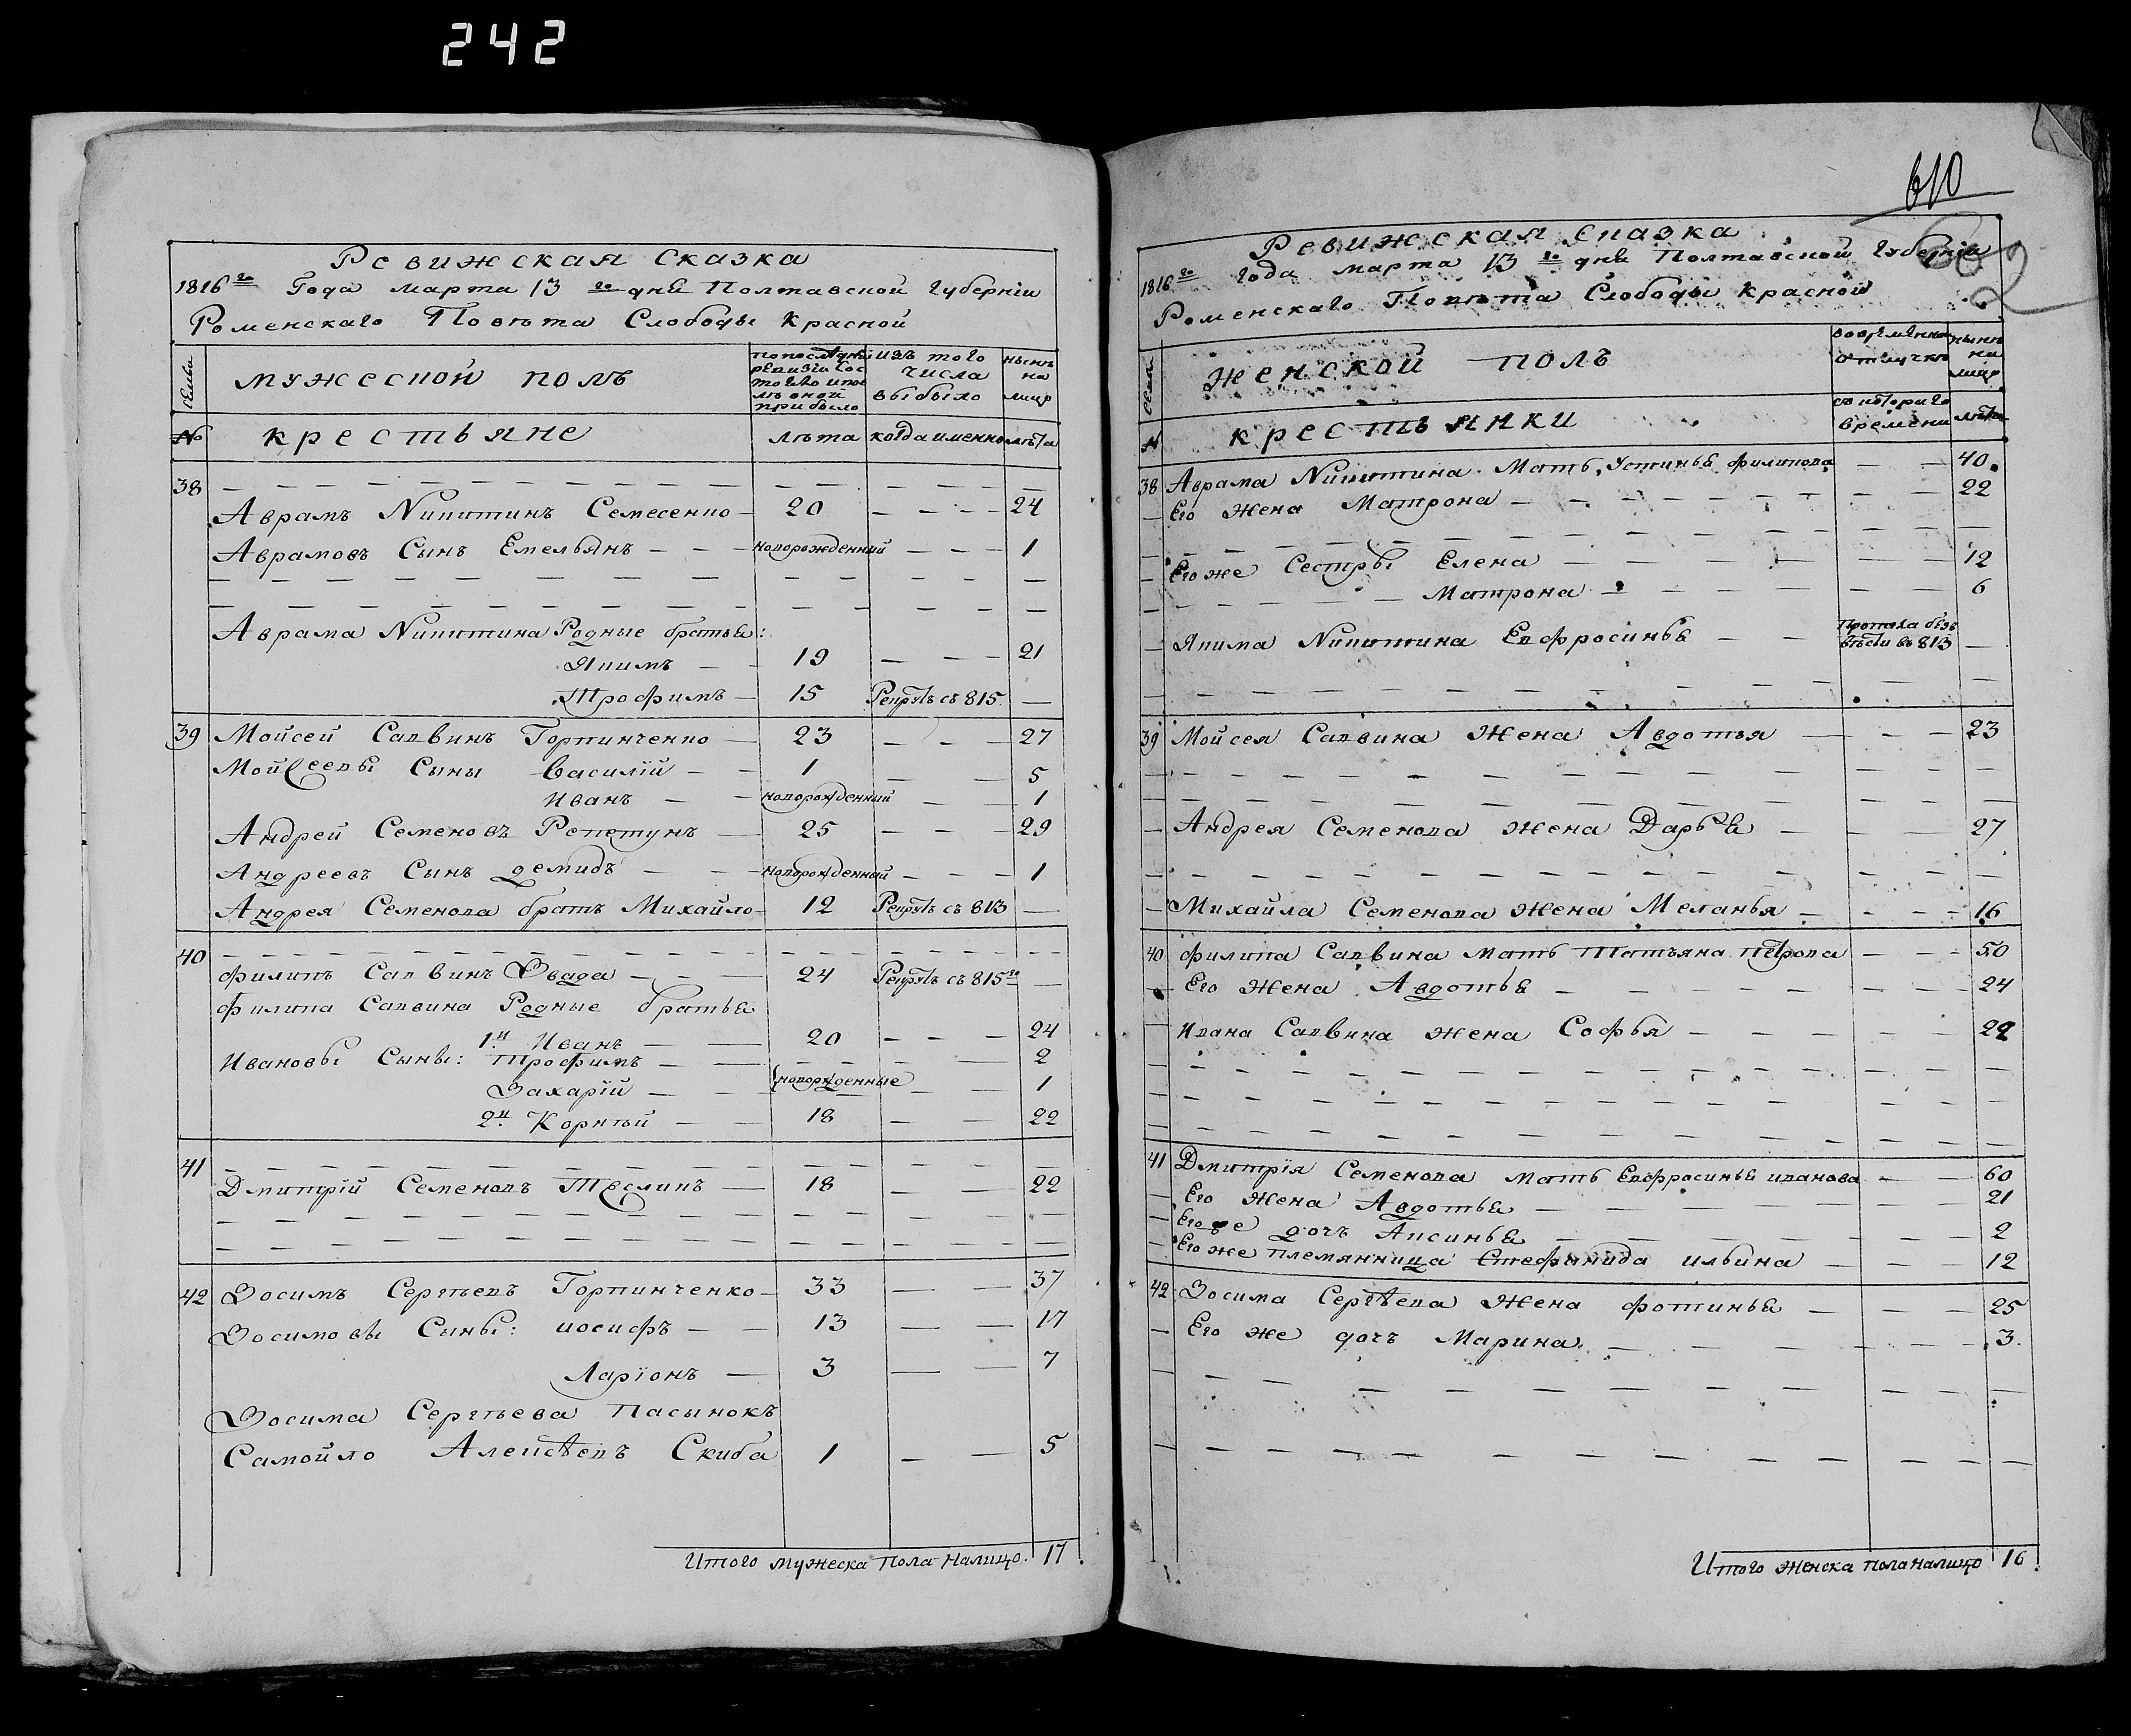 242
Ревижская сказка
1816го Года марта 13го дня Полтавской губерніи
Роменскаго Повѣта Слободы Красной
семьи
мужеской полъ
нынѣ на лице
изъ того числа выбыло
№
крестьяне
лѣта
когда именно
лѣта
38
Аврамъ Никитинъ Семесенко 20 24
Аврамовъ Сынъ Емельянъ новорожденный 1
Аврама Никитина Родные братья:
Якимъ 19 21
Трофимъ 15 Рекрутъ съ 815
39 Мойсей Саввинъ Горпинченко 23 27
Мойсеевы Сыны Василій 1 5
Иванъ новорожденный 1
Андрей Семеновъ Репетунъ 25 29
Андреевъ Сынъ демидъ новорожденный 1
Андрея Семенова братъ Михайло 12 Рекрутъ съ 813
40
филипъ Саввинъ 24 Рекрутъ съ 815го
филипа Саввина Родные братья
1й Иванъ 20 24
Ивановы Сыны: Трофимъ 2
Захарій новорожденные 1
2й Корнѣй 18 22
41
Дмитрій Семеновъ 18 22
42 Зосимъ Сергѣевъ Горпинченко 33 37
Зосимовы Сыны: иосифъ 13 17
Ларіонъ 3 7
Зосима Сергѣева пасынокъ
Самойло Алексѣевъ Скиба 1 5
Итого мужеска пола налицо. 17.
610
602
Ревижская сказка
1816го года марта 13го дня Полтавской губерніи
Роменскаго Повѣта Слободы Красной
семьи
женской полъ
во временной отлучкѣ
нынѣ на лице
№
крестьянки
съ котораго времени
лѣта
38 Аврама Никитина Мать, Устинья филипова 40.
Его Жена Матрона 22
Его же Сестры Елена 12
Матрона 6
Якима Никитина Евфросинья Пропала безъ вѣсти въ 813
39 Мойсея Саввина Жена Авдотья 23
Андрея Семенова жена Дарья 27
Михайла Семенова жена Меланья 16
40 филипа Саввина мать Татьяна петрова 50
Его Жена Авдотья 24
Ивана Саввина жена Софья 22
41 Дмитрія Семенова мать Евфросинья иванова 60
Его Жена Авдотья 21
Его же дочъ Аксинья 2
Его же племянница Стефанида ильина 12
42 Зосима Сергѣева Жена фотинья 25
Его же дочъ Марина. 3.
Итого женска пола налицо 16.